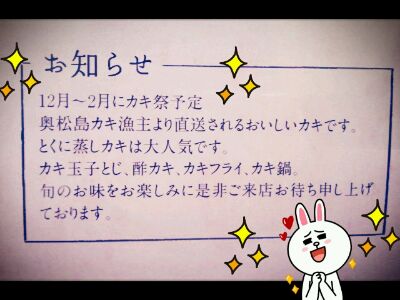 お知らせ
12月～2月にカキ祭予定
奥松島カキ漁主より直送されるおいしいカキです。
とくに蒸しカキは大人気です。
カキ玉子とじ、酢カキ、カキフライ、カキ鍋。
旬のお味をお楽しみに是非ご来店お待ち申し上げ
ております。